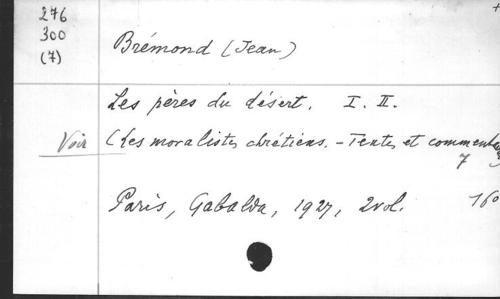 276
300
(7)
+
Brémond (Jean)
Les pères du désert. I. II.
Voir
(Les moralistes chrétiens. - Textes et comment
7
Paris, Gabalda, 1927, 2 vol. 16°